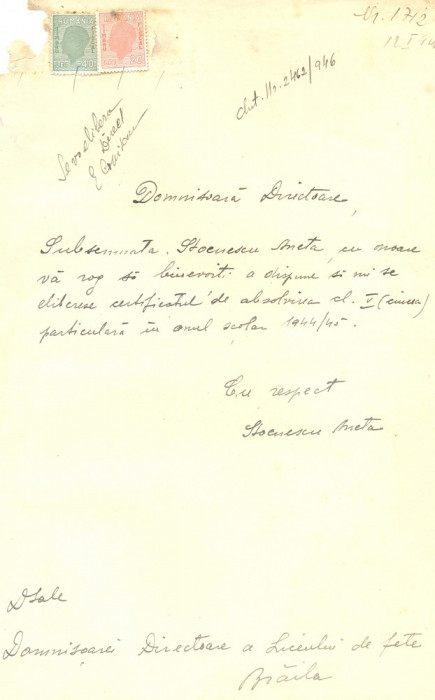 Nr. 1712
12 I 94
ROMANIA
cht. Nr. 2462/946
Se va elibera
Direct
Domnisoară Directoare,
Subsemnata Stoenescu Aneta, cu onoare
vă rog să binevoiti a dispune să mi se
elibereze certificatul de absolvirea cl. V (cincea)
particulară în anul școlar 1944/45.
Cu respect
Stoenescu Aneta
Dsale
Domnișoarei Directoare a Liceului de fete
Brăila